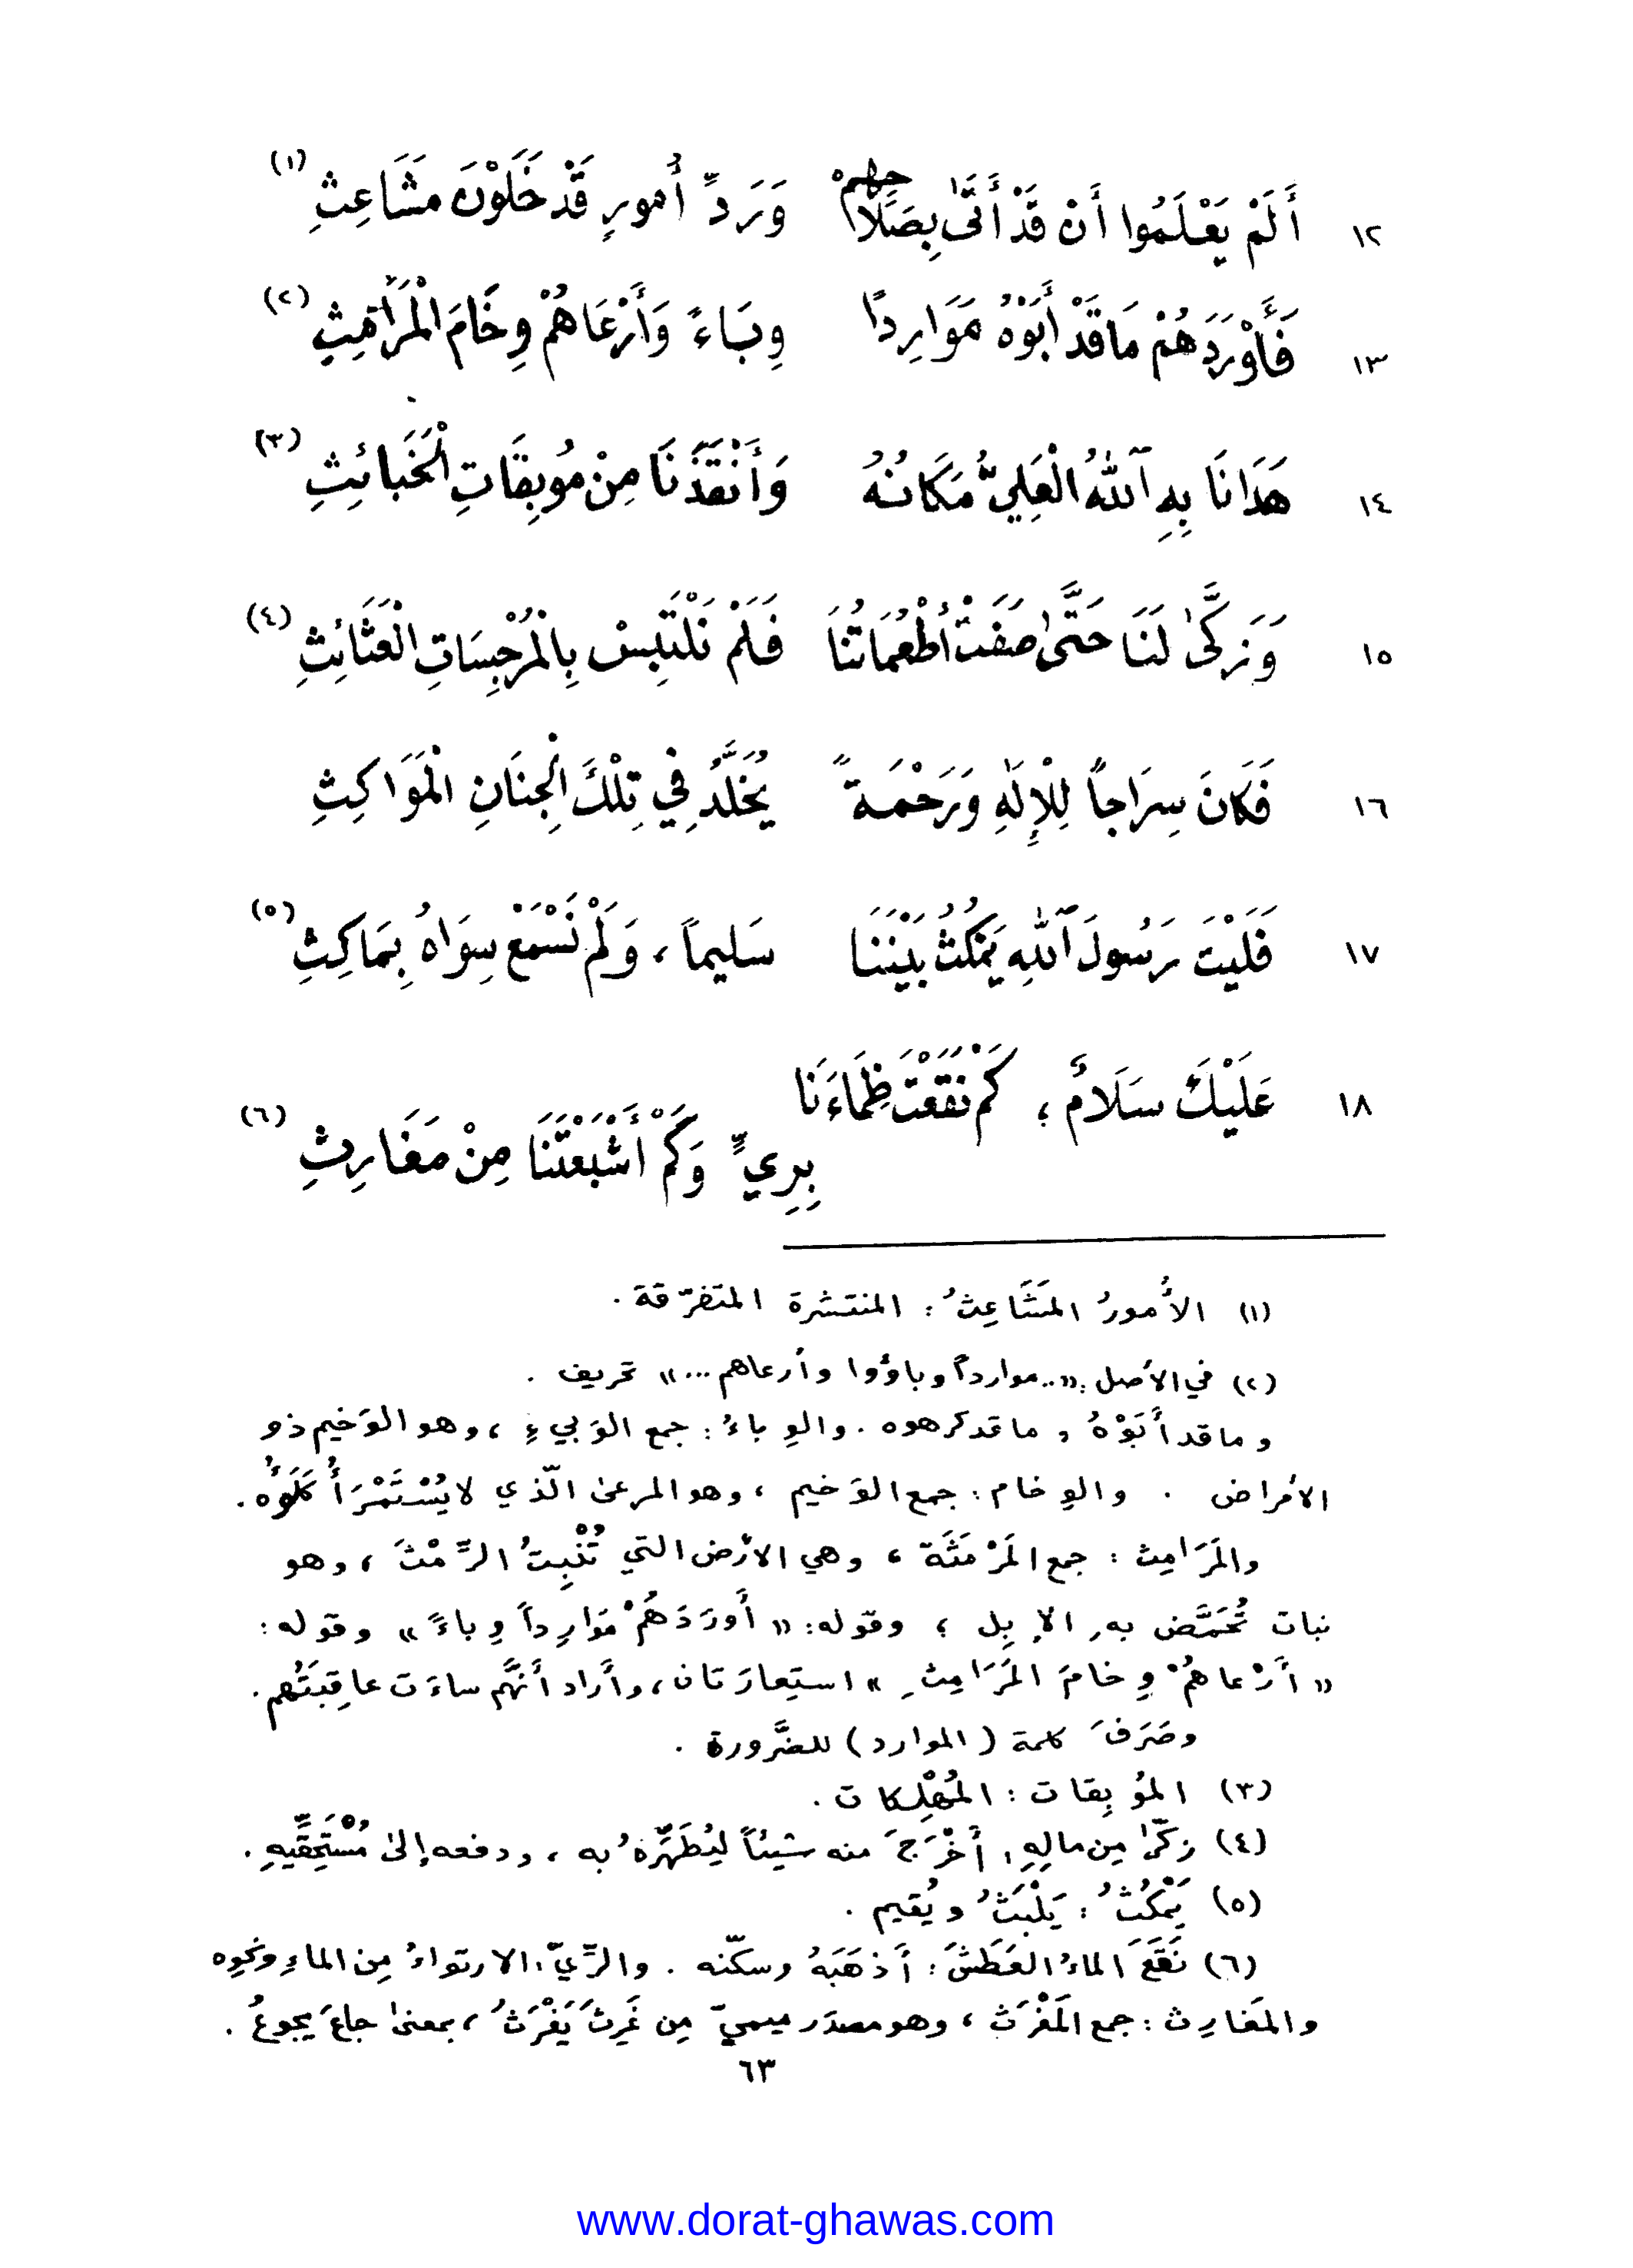 ١٢ أَلَمْ يَعْلَمُوا أَنْ قَدْ أَتَى بِصَلَاحِهِمْ وَرَدِّ أُمورٍ قَدْ خَلَوْنَ مَشَاعِثِ (١)
١٣ فَأَوْرَدَهُمْ مَا قَدْ أَبَوْهُ مَوَارِداً وِبَاءً وَأَرْعَاهُمْ وِخَامَ الْمَرَامِثِ (٢)
١٤ هَدَانَا بِهِ اللّٰهُ الْعَلِيُّ مَكَانُهُ وَأَنْقَذَنَا مِنْ مُوبِقَاتِ الْخَبَائِثِ (٣)
١٥ وَزَكَّىٰ لَنَا حَتَّىٰ صَفَتْ أُطْعُمَاتُنَا فَلَمْ نَلْتَبِسْ بِالْمُرْجِسَاتِ الْعَثَائِثِ (٤)
١٦ فَكَانَ سِرَاجاً لِلْإِلَٰهِ وَرَحْمَةً يُخَلَّدُ فِي تِلْكَ الْجِنَانِ الْمَوَاكِثِ
١٧ فَلَيْتَ رَسُولَ اللّٰهِ يَمْكُثُ بَيْنَنَا سَلِيماً ، وَلَمْ نَسْمَعْ سِوَاهُ بِمَاكِثِ (٥)
١٨ عَلَيْكَ سَلَامٌ ؛ كَمْ نَقَعْتَ ظِمَاءَنَا
بِرِيٍّ وَكَمْ أَشْبَعْتَنَا مِنْ مَغَارِثِ (٦)
(١) الأُمورُ المَشَاعِثُ : المنتشرة المتفرّقة .
(٢) في الأصل : «.. موارداً وباؤوا وأرعاهم ...» تحريف .
وما قد أَبَوْهُ ، ما قد كرهوه . والوِباءُ : جمع الوَبيءِ ، وهو الوَخيم ذو
الأمراض . والوِخام : جمع الوَخيم ، وهو المرعىٰ الّذي لا يُسْتَمْرَأُ كَلَؤُه .
والمَرَامِث : جمع المَرْمَثَة ، وهي الأرض التي تُنْبِتُ الرِّمْثَ ، وهو
نبات تُحَمَّض به الإبِل ؛ وقوله : « أَورَدَهُمْ مَوَارِداً وِباءً » وقوله :
« أَرْعاهُمْ وِخامَ المَرَامِثِ » استِعارَتان ، وأَراد أَنَّهُم ساءَت عاقِبَتُهم .
وصَرَفَ كلمة ( الموارد ) للضَّرورة .
(٣) المُوبِقات : المُهْلِكات .
(٤) زكّىٰ مِن مالِهِ ، أَخْرَجَ منه شيئاً لِيُطَهِّرَهُ به ، ودفعه إلىٰ مُسْتَحِقِّيهِ .
(٥) يَمْكُثُ : يَلْبَثُ ويُقيم .
(٦) نَقَعَ الماءُ العَطَشَ : أَذهَبَهُ وسكّنه . والرِّيّ : الارتواءُ مِن الماءِ ونحوِه
والمَغارِث : جمع المَغْرَث ، وهو مصدَر ميميّ مِن غَرِثَ يَغْرَثُ ، بمعنىٰ جاعَ يجوعُ .
٦٣
www.dorat-ghawas.com